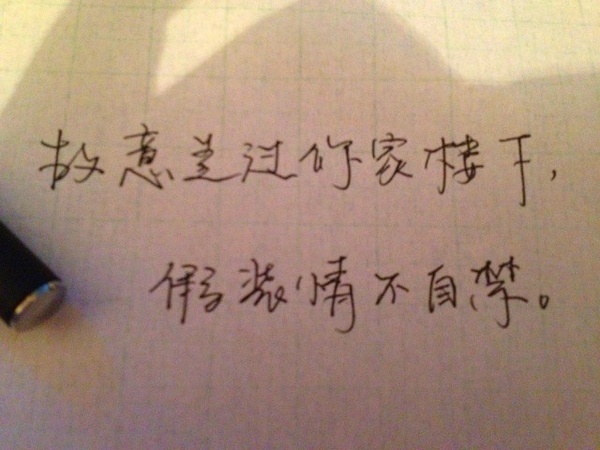 故意走过你家楼下，
假装情不自禁。